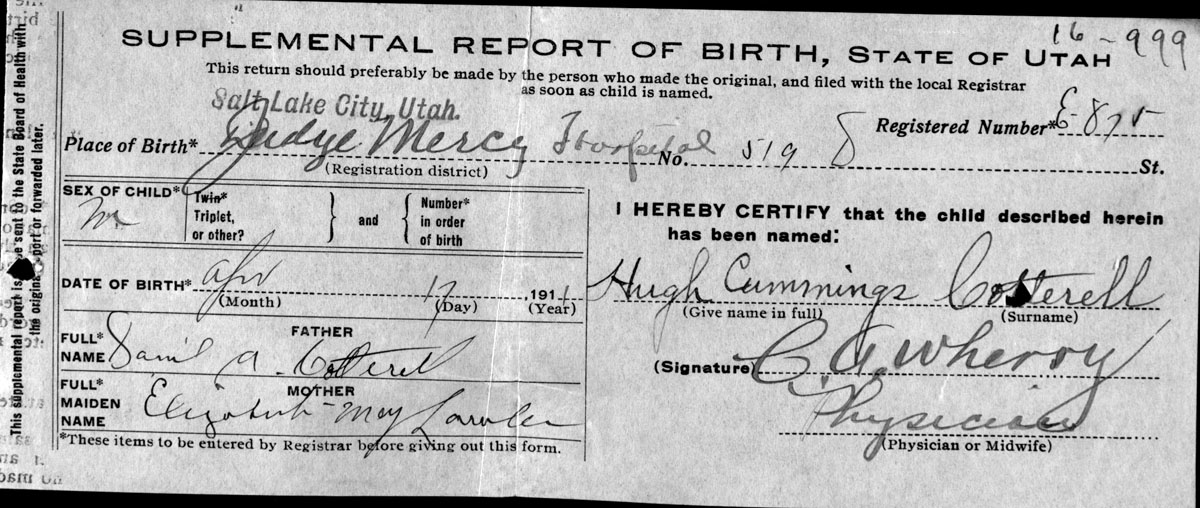 16-999
SUPPLEMENTAL REPORT OF BIRTH, STATE OF UTAH
This return should preferably be made by the person who made the original, and filed with the local Registrar
as soon as child is named.
Salt Lake City, Utah.
Registered Number* E-875
Place of Birth* Judge Mercy Hospital No. 519 8 St.
(Registration district)
SEX OF CHILD* M
Twin*
Triplet,
or other?
and
Number*
in order
of birth
DATE OF BIRTH* Apr 17, 1911
(Month) (Day) (Year)
FATHER
FULL* NAME A. Cotterell
MOTHER
FULL* MAIDEN NAME Elizabeth May
*These items to be entered by Registrar before giving out this form.
I HEREBY CERTIFY that the child described herein
has been named:
Hugh Cummings Cotterell
(Give name in full) (Surname)
(Signature) C. G. Wherry
Physician
(Physician or Midwife)
This supplemental report is be sent to the State Board of Health with
the original report or forwarded later.